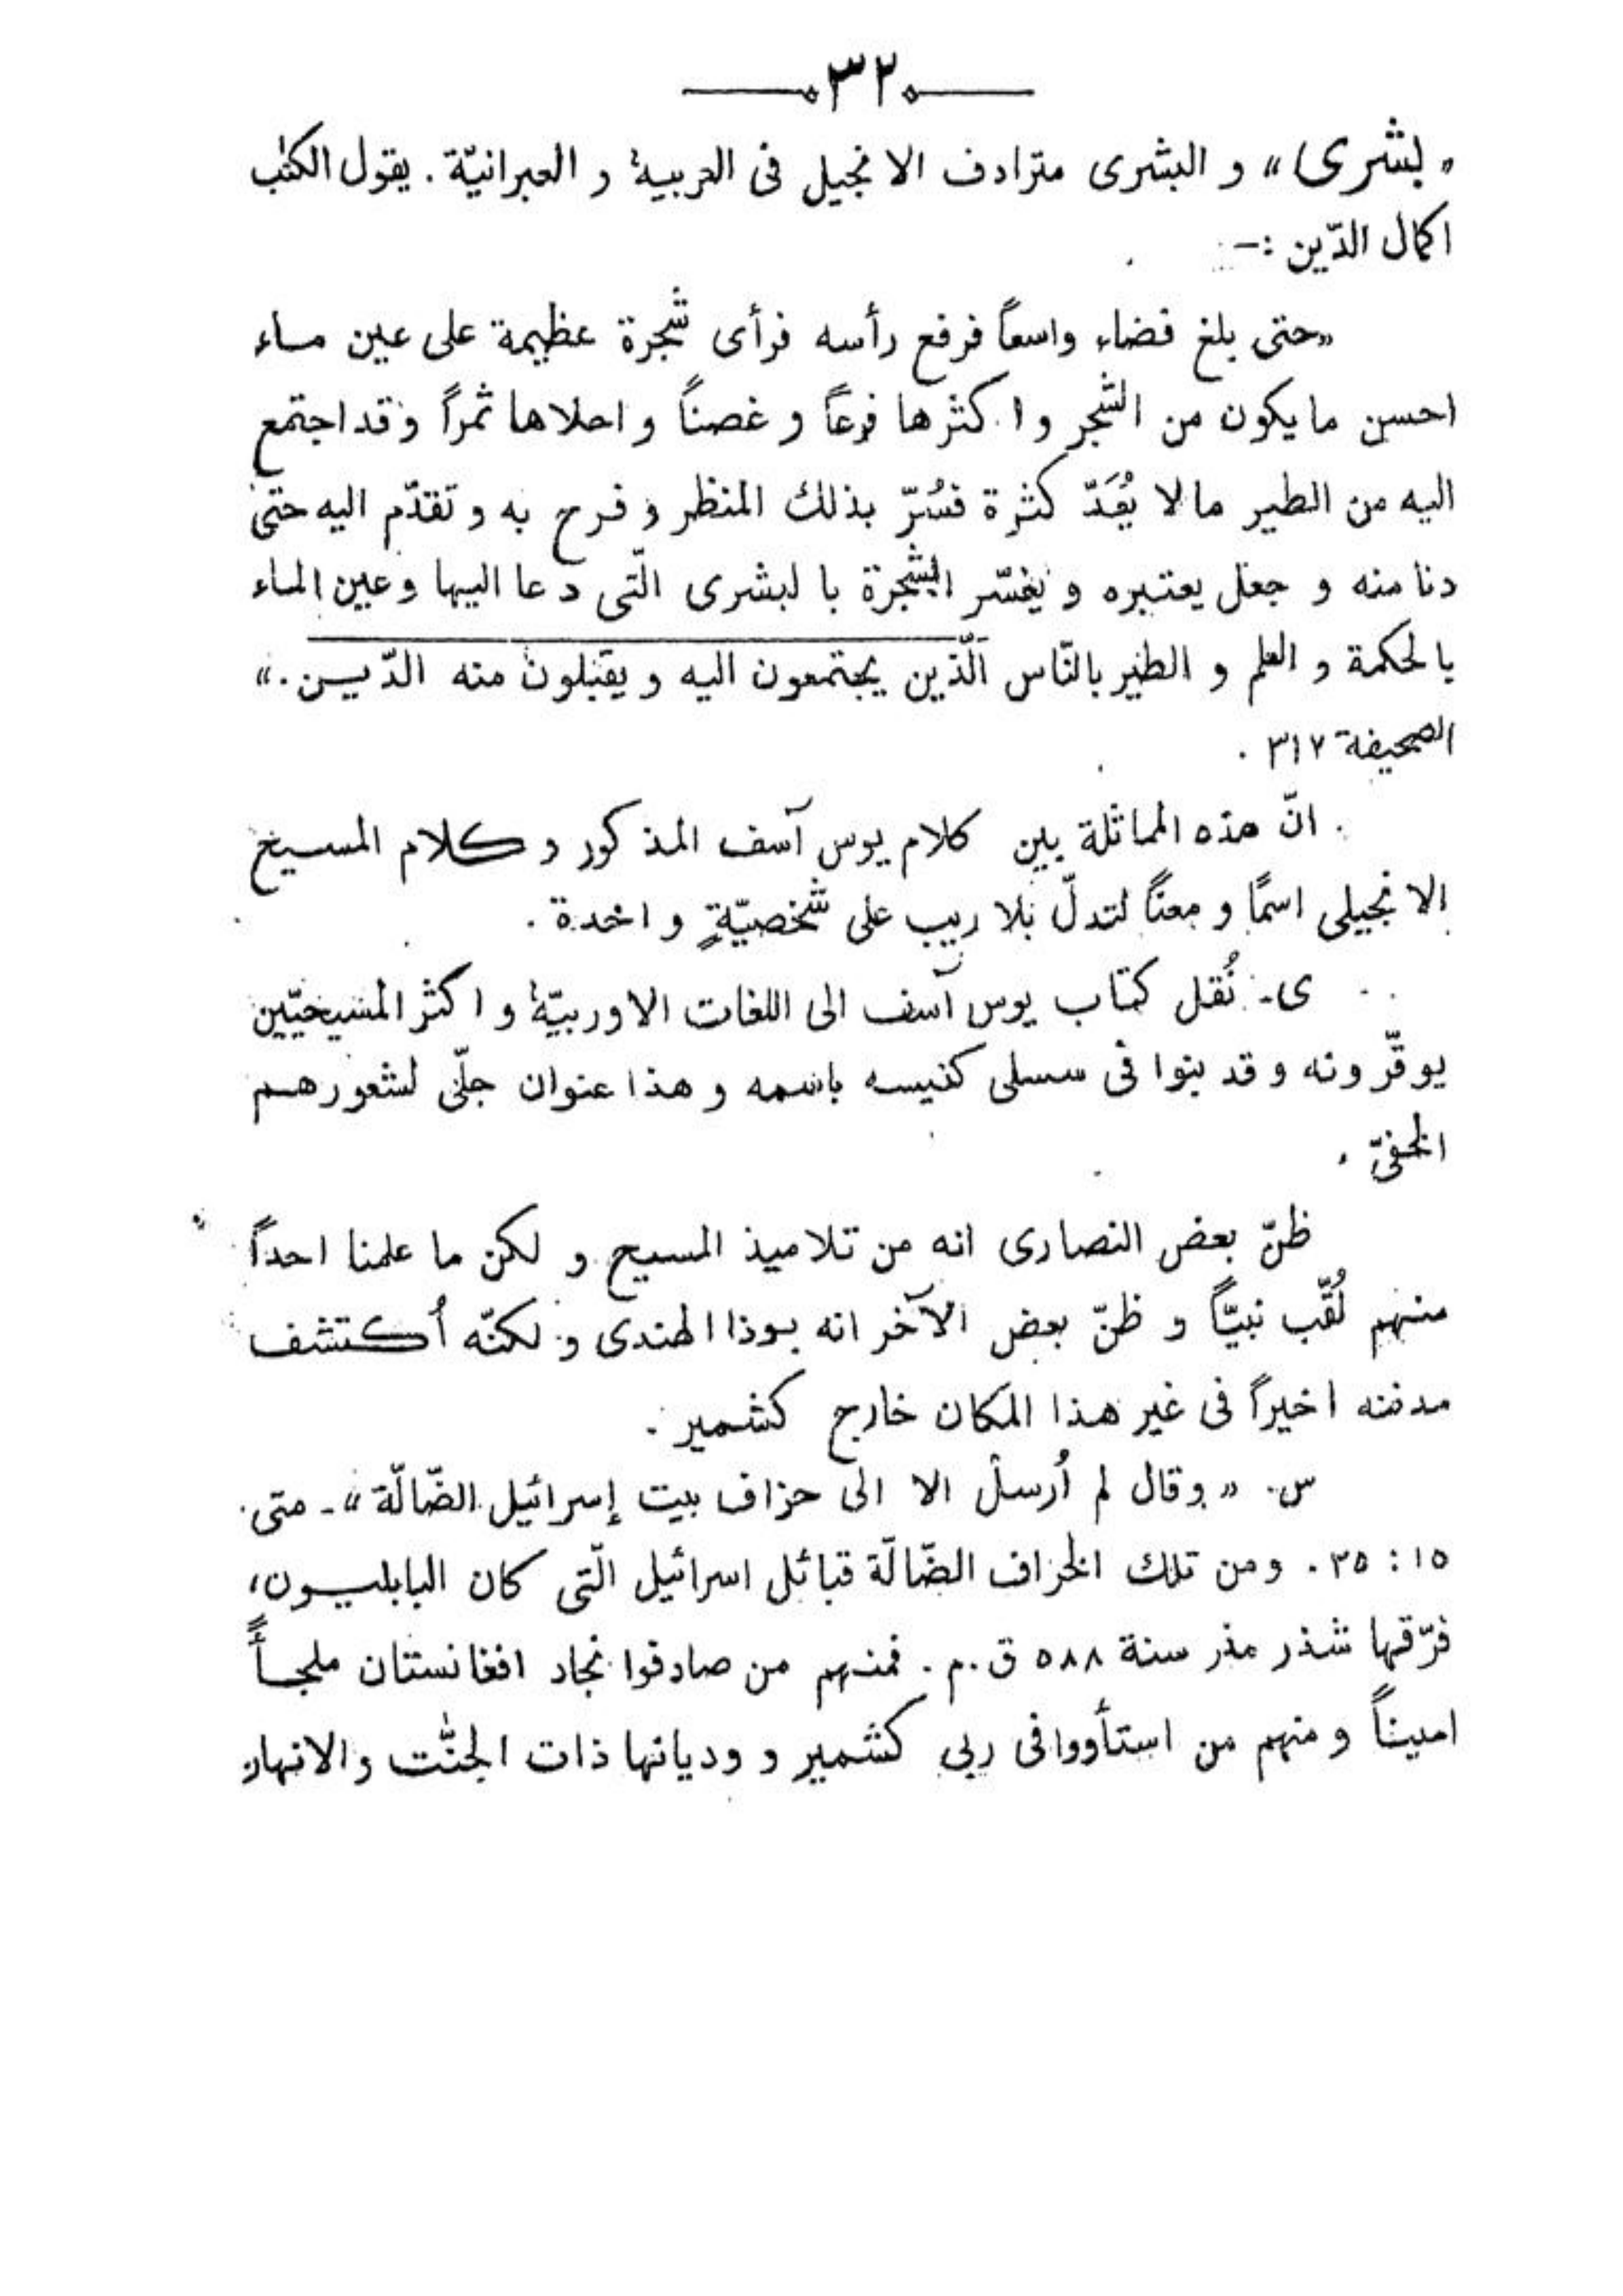 ٣٢
« بشرى » و البشرى مترادف الانجيل فى العربية و العبرانيّة . يقول الكتٰب
اكمال الدّين :-
«حتى بلغ فضاء واسعاً فرفع رأسه فرأى شجرة عظيمة على عين مـاء
احسن ما يكون من الشّجر و اكثرها فرعاً و غصناً و احلاها ثمراً و قد اجتمع
اليه من الطير مالا يُعَدّ كثرة فسُرّ بذلك المنظر و فرح به و تقدّم اليه حتى
دنا منه و جعل يعتبره و يفسّر الشّجرة با لبشرى الّتى دعا اليها و عين الماء
بالحكمة و العلم و الطير بالنّاس الّذين يجتمعون اليه و يقبلون منه الدّيـن .»
الصحيفة ٣١٧ .
انّ هذه المماثلة بين كلام يوس آسف المذكور و كلام المسـيح
الانجيلى اسمًا و معنًا لتدلّ بلا ريب على شخصيّةٍ واحدة .
ى- نُقل كتاب يوس آسف الى اللغات الاوربيّة و اكثر المسيحيّين
يوقّرونه و قد بنوا فى سسلى كنيسه باسمه و هذا عنوان جلّى لشعورهـم
الخفىّ .
ظنّ بعض النصارى انه من تلاميذ المسيح و لكن ما علمنا احداً
منهم لُقّب نبيّاً و ظنّ بعض الآخر انه بوذا الهندى و لكنّه أكتشف
مدفنه اخيراً فى غير هذا المكان خارج كشمير .
س. « وقال لم اُرسل الا الى خراف بيت إسرائيل الضّالّة » - متى
١٥ : ٢٥ . ومن تلك الخراف الضّالّة قبائل اسرائيل الّتى كان البابليـون،
فرّقها شذر مذر سنة ٥٨٨ ق.م. فمنهم من صادفوا نجاد افغانستان ملجـأً
اميناً و منهم من استأووا فى ربى كشمير و وديانها ذات الجنّٰت والانهار